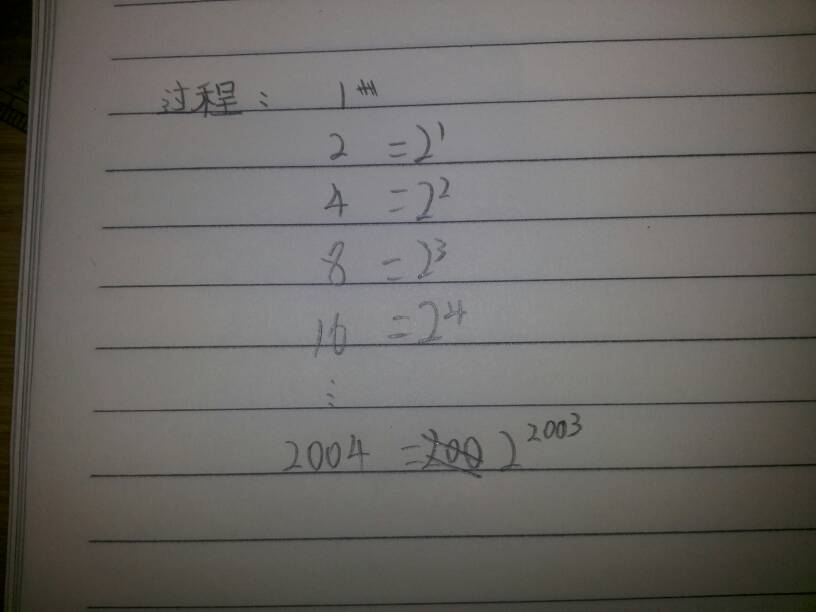 过程：1
2 =2¹
4 =2²
8 =2³
16 =2⁴
⋮
2004 =2²⁰⁰³